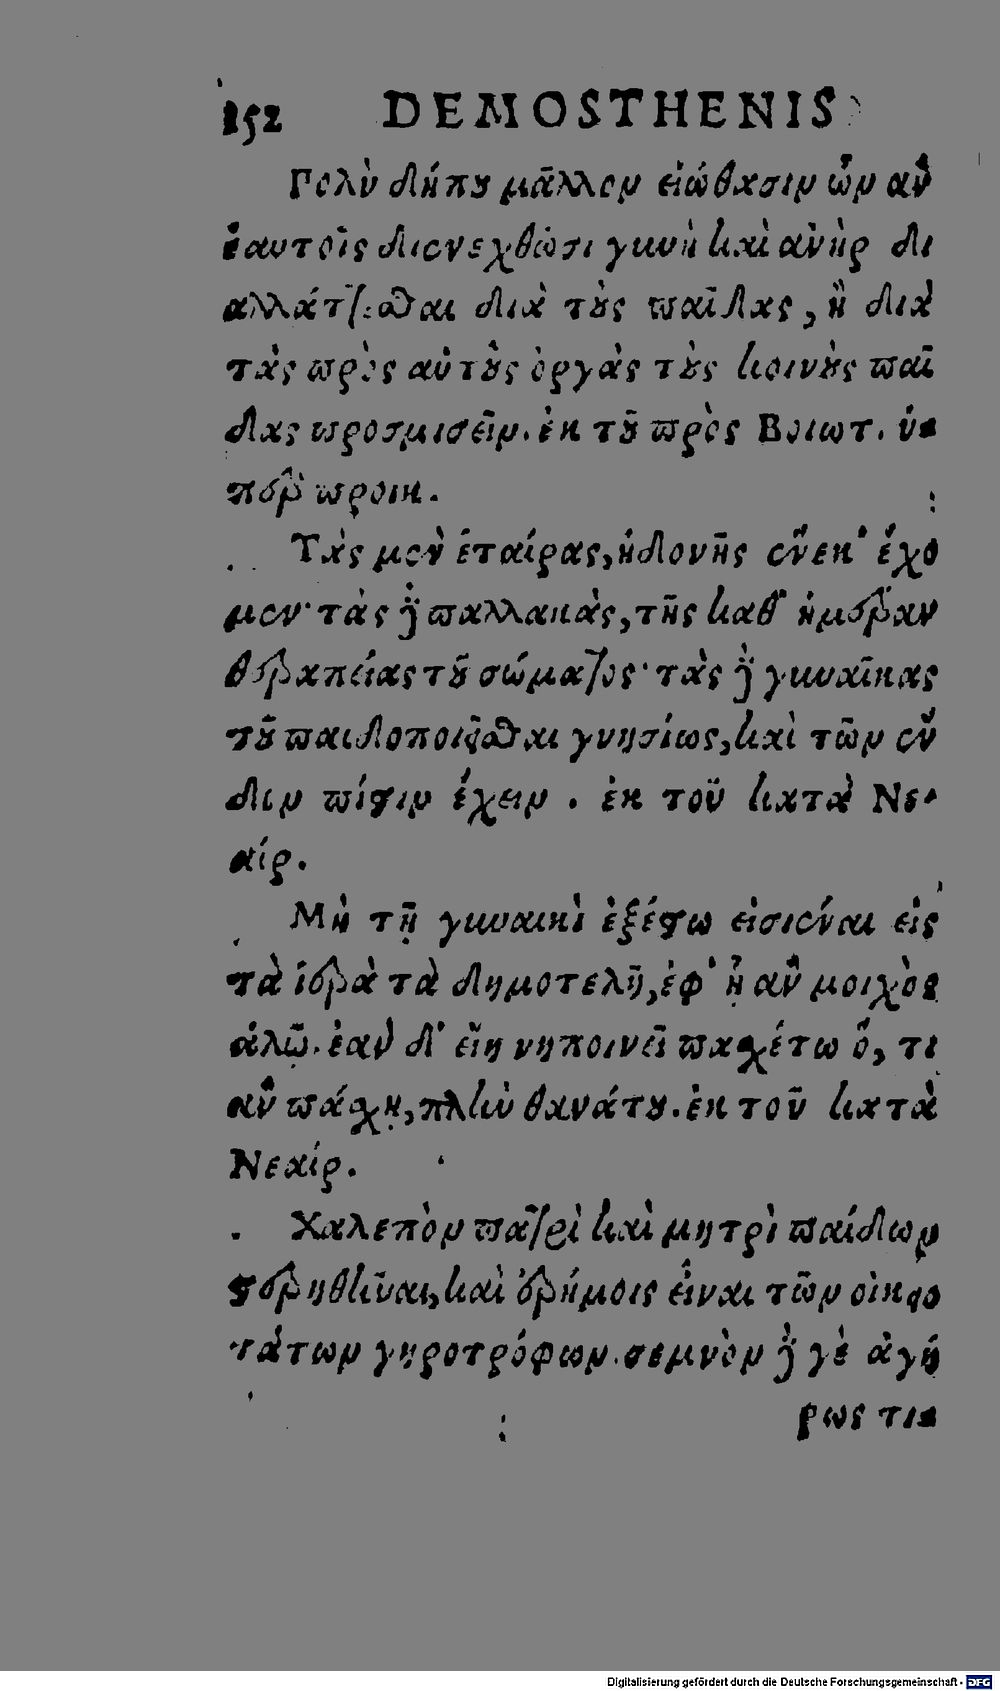 152 DEMOSTHENIS
Πολὺ δήπου μᾶλλον εἰώθασιν ὧν ἂν
ἑαυτοῖς διενεχθῶσι γυνὴ καὶ ἀνὴρ δι
αλλάττεσθαι διὰ τοὺς παῖδας, ἢ διὰ
τὰς πρὸς αὑτοὺς ὀργὰς τοὺς κοινοὺς παῖ
δας προσμισεῖν. ἐκ τοῦ πρὸς Βοιωτ. ὑ-
περ προικ.
Τὰς μὲν ἑταίρας, ἡδονῆς ἕνεκ' ἔχο
μεν· τὰς δὲ παλλακὰς, τῆς καθ' ἡμέραν
θεραπείας τοῦ σώματος· τὰς δὲ γυναῖκας
τοῦ παιδοποιεῖσθαι γνησίως, καὶ τῶν ἔν
διν πίστιν ἔχειν. ἐκ τοῦ κατὰ Νε-
αίρ.
Μὴ τῇ γυναικὶ ἐξέστω εἰσιέναι εἰς
τὰ ἱερὰ τὰ δημοτελῆ, ἐφ' ᾗ ἂν μοιχὸς
ἁλῷ. ἐὰν δ' εἴη νηποινεῖ πασχέτω ὅ, τι
ἂν πάσχῃ, πλὴν θανάτου. ἐκ τοῦ κατὰ
Νεαίρ.
Χαλεπὸν πατρὶ καὶ μητρὶ παίδων
στερηθῆναι, καὶ ἐρήμοις εἶναι τῶν οἰκειο
τάτων γηροτρόφων. σεμνὸν δέ γε ἀγή
ρως τι-
Digitalisierung gefördert durch die Deutsche Forschungsgemeinschaft - DFG